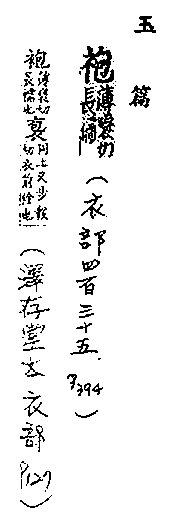 玉篇
袍薄襃切長襦(衣部四百三十五.P394)
袍薄襃切長襦也裒同上又步報切衣前襟也(澤存堂本衣部P127)